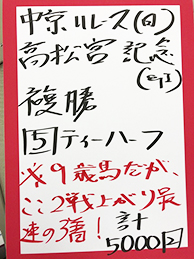 中京11レース(日)
高松宮記念
(GⅠ)
複勝
5ティーハーフ
※9歳馬だが、
ここ2戦上がり最
速の猪!計
5000円